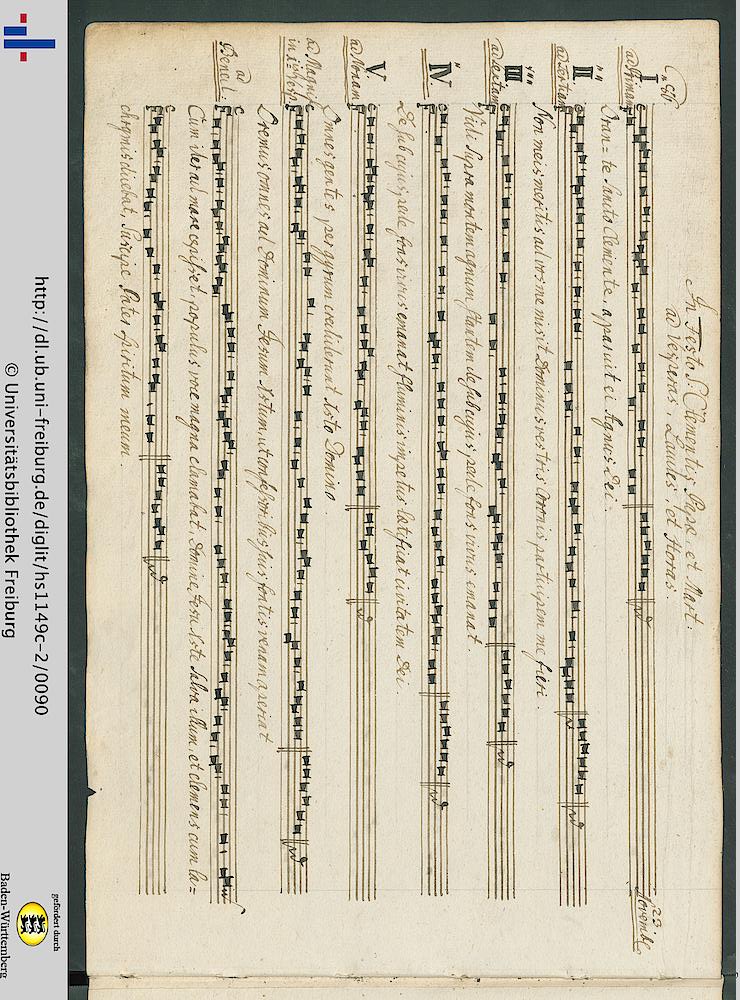 In Festo S: Clementis Papæ et Mart:
ad Vesperas Laudes et Horas.
23
Novemb:
I
ad Primam
Oran=te Sancto Clemente, apparuit ei Agnus Dei.
II
ad Tertiam
Non meis meritis ad vos me misit Dominus vestris coronis participem me fieri.
III
ad Sextam
Vidi supra montem agnum stantem de sub cujus pede fons vivus emanat.
IV
De sub cujus pede fons vivus emanat fluminis impetus lætificat civitatem Dei.
V
ad Nonam
Omnes gentes per gyrum crediderunt Xsto Domino.
ad Magnif:
in Vesp:
Oremus omnes ad Dominum Jesum Xstum, ut confessoribus suis fontis venam aperiat
ad
Bened.
Cum iter ad mare cepisset, populus voce magna clamabat, Domine Jesu Xste salva illum, et clemens cum la=
chrymis dicebat, suscipe Pater spiritum meum.
http://dl.ub.uni-freiburg.de/diglit/hs1149c-2/0090
© Universitätsbibliothek Freiburg
gefördert durch
Baden-Württemberg